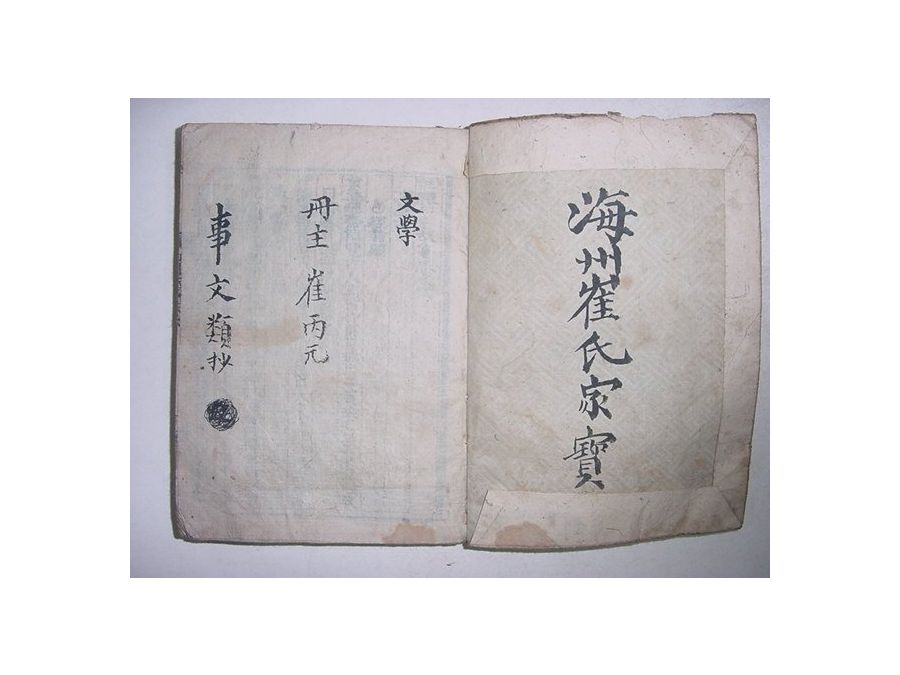 海州崔氏家寶
文學
冊主 崔丙元
事文類抄